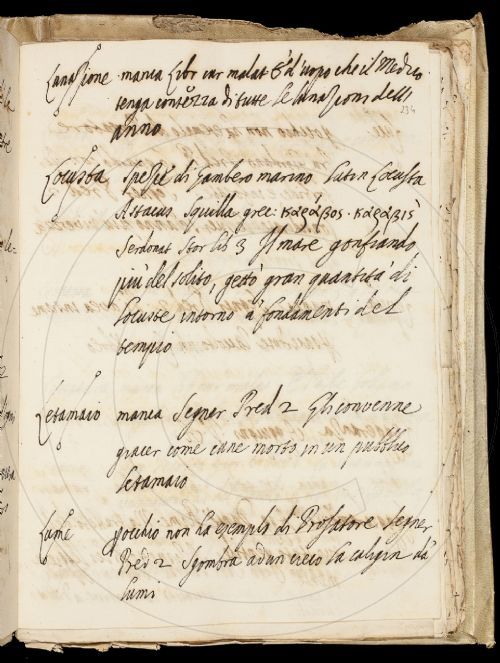 Lunazione manca Libr cur malat E' d'uopo che il Medico
tenga contezza di tutte le lunazioni dell
anno
234
Locusta spezie di gambero marino Latin Locusta
Astacus Squilla grec: καράβος. καραβίς
Serdonat Stor lib 3 Il mare gonfiando
più del solito, gettò gran quantità di
locuste intorno a' fondamenti del
tempio
Letamaio manca Segner Pred 2 Gli convenne
giacer come cane morto in un pubblico
letamaio
Lume p ochio non ha esempli di Prosatore Segner
Pred 2 Sgombrò ad un cieco la caligin da'
lumi